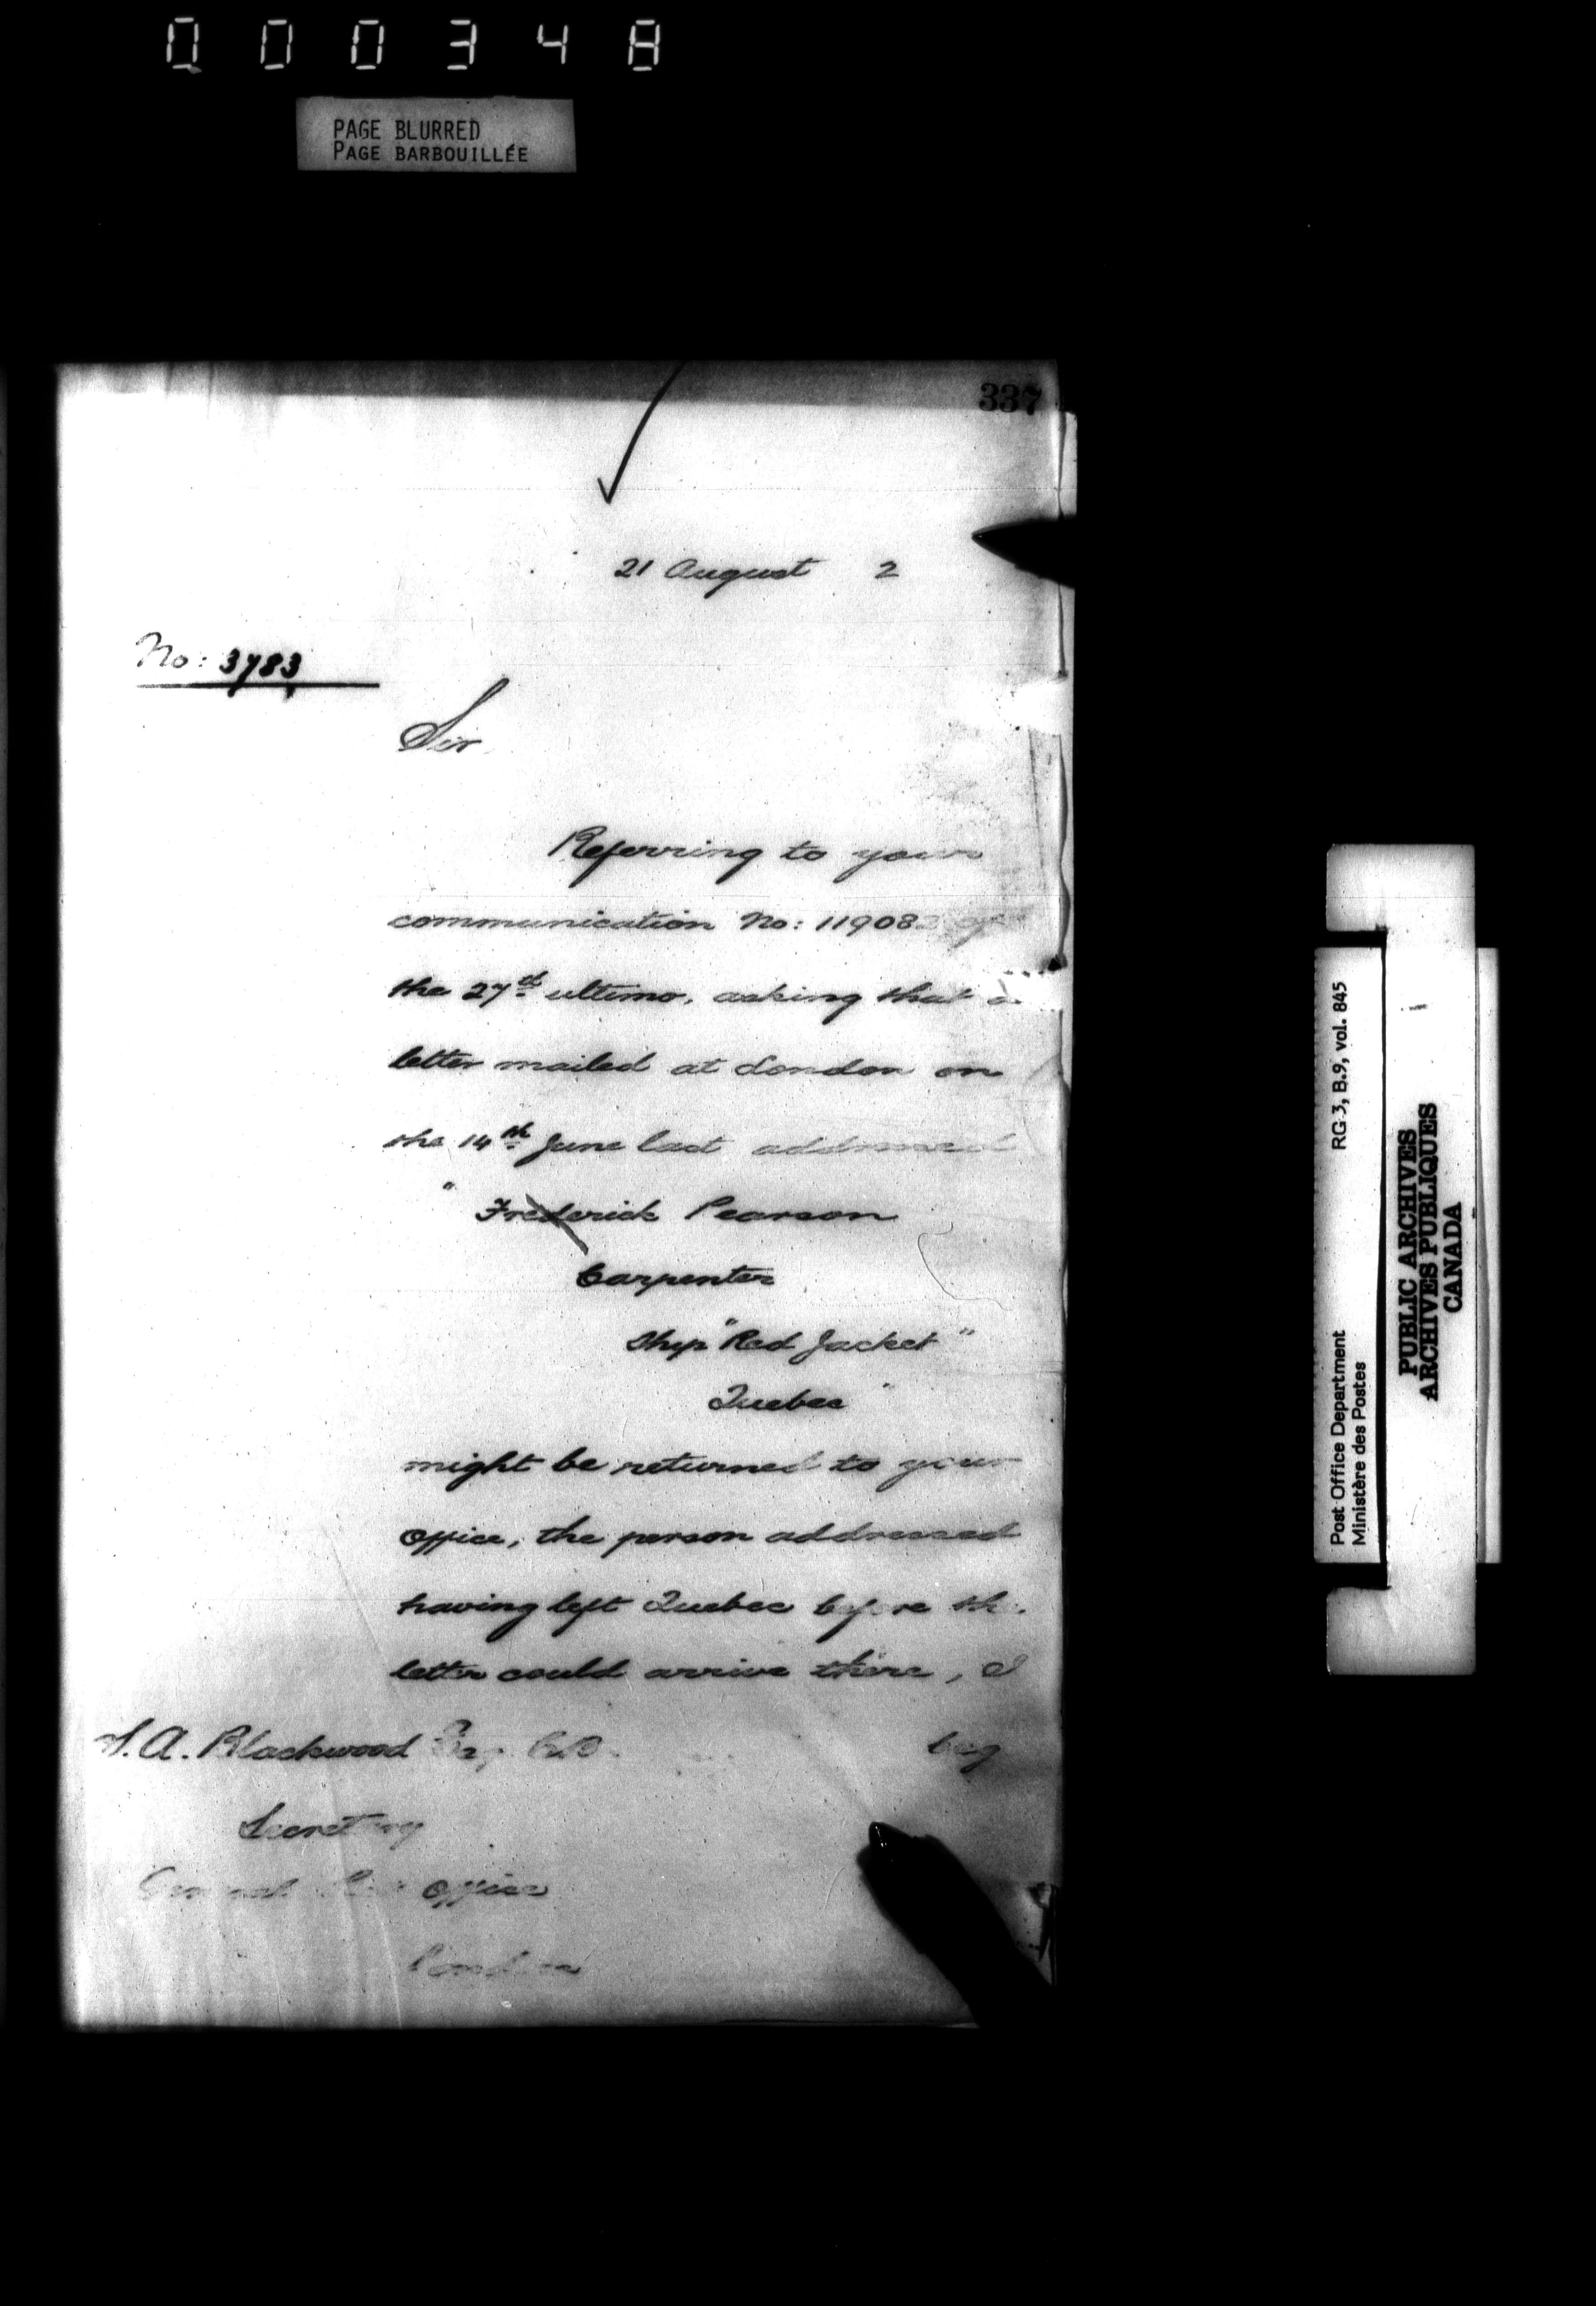 000348
PAGE BLURRED
PAGE BARBOUILLÉE
337
21 August 2
No: 3783
Sir
Referring to your
communication No: 11908 of
the 27th ultimo, asking that a
letter mailed at London on
the 14th June last addressed
" Frederick Pearson
Carpenter
Ship "Red Jacket"
Quebec"
might be returned to your
Office, the person addressed
having left Quebec before the
letter could arrive there, I
beg
S.A. Blackwood Esq. C.B.
Secretary
General Post Office
London
RG 3, B.9, vol. 845
Post Office Department
Ministère des Postes
PUBLIC ARCHIVES
ARCHIVES PUBLIQUES
CANADA